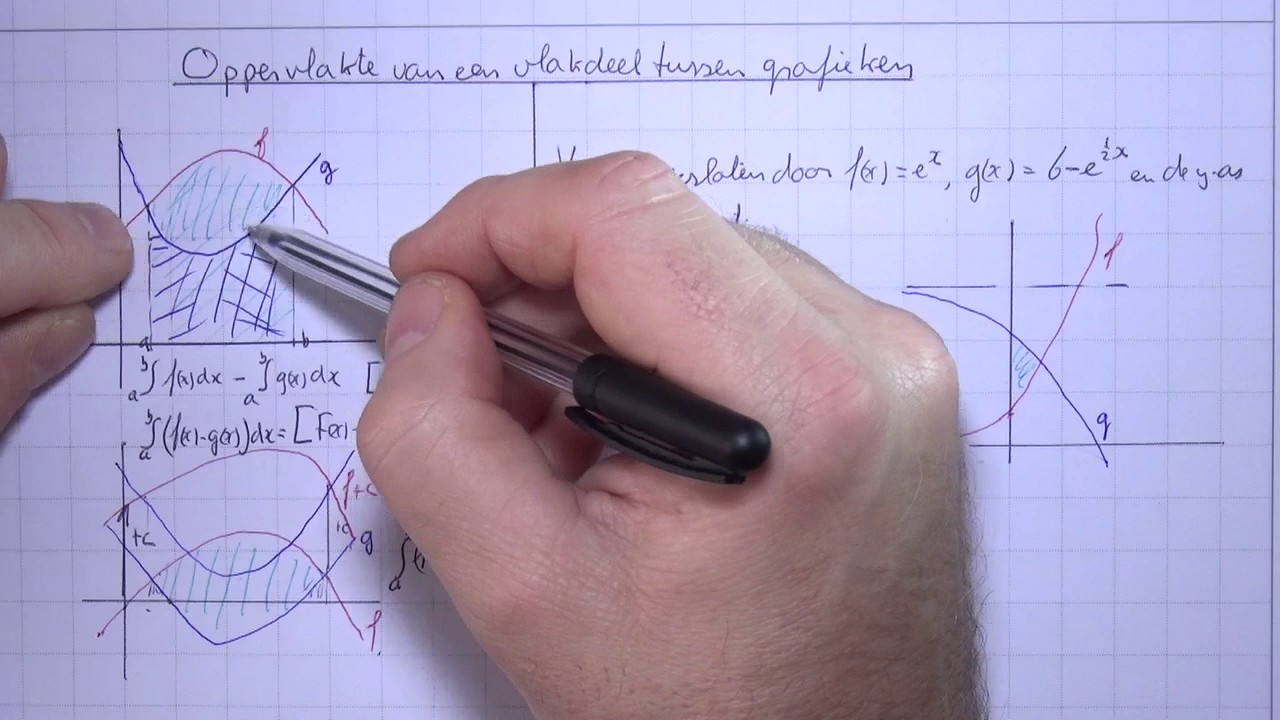 Oppervlakte van een vlakdeel tussen grafieken
f
g
a
b
ₐ∫ᵇ f(x)dx - ₐ∫ᵇ g(x)dx [
ₐ∫ᵇ (f(x)-g(x))dx = [F(x)-
f+c
+c
+c
g
f
ₐ∫
door f(x) = eˣ, g(x) = 6-e^{½x} en de y-as
f
g